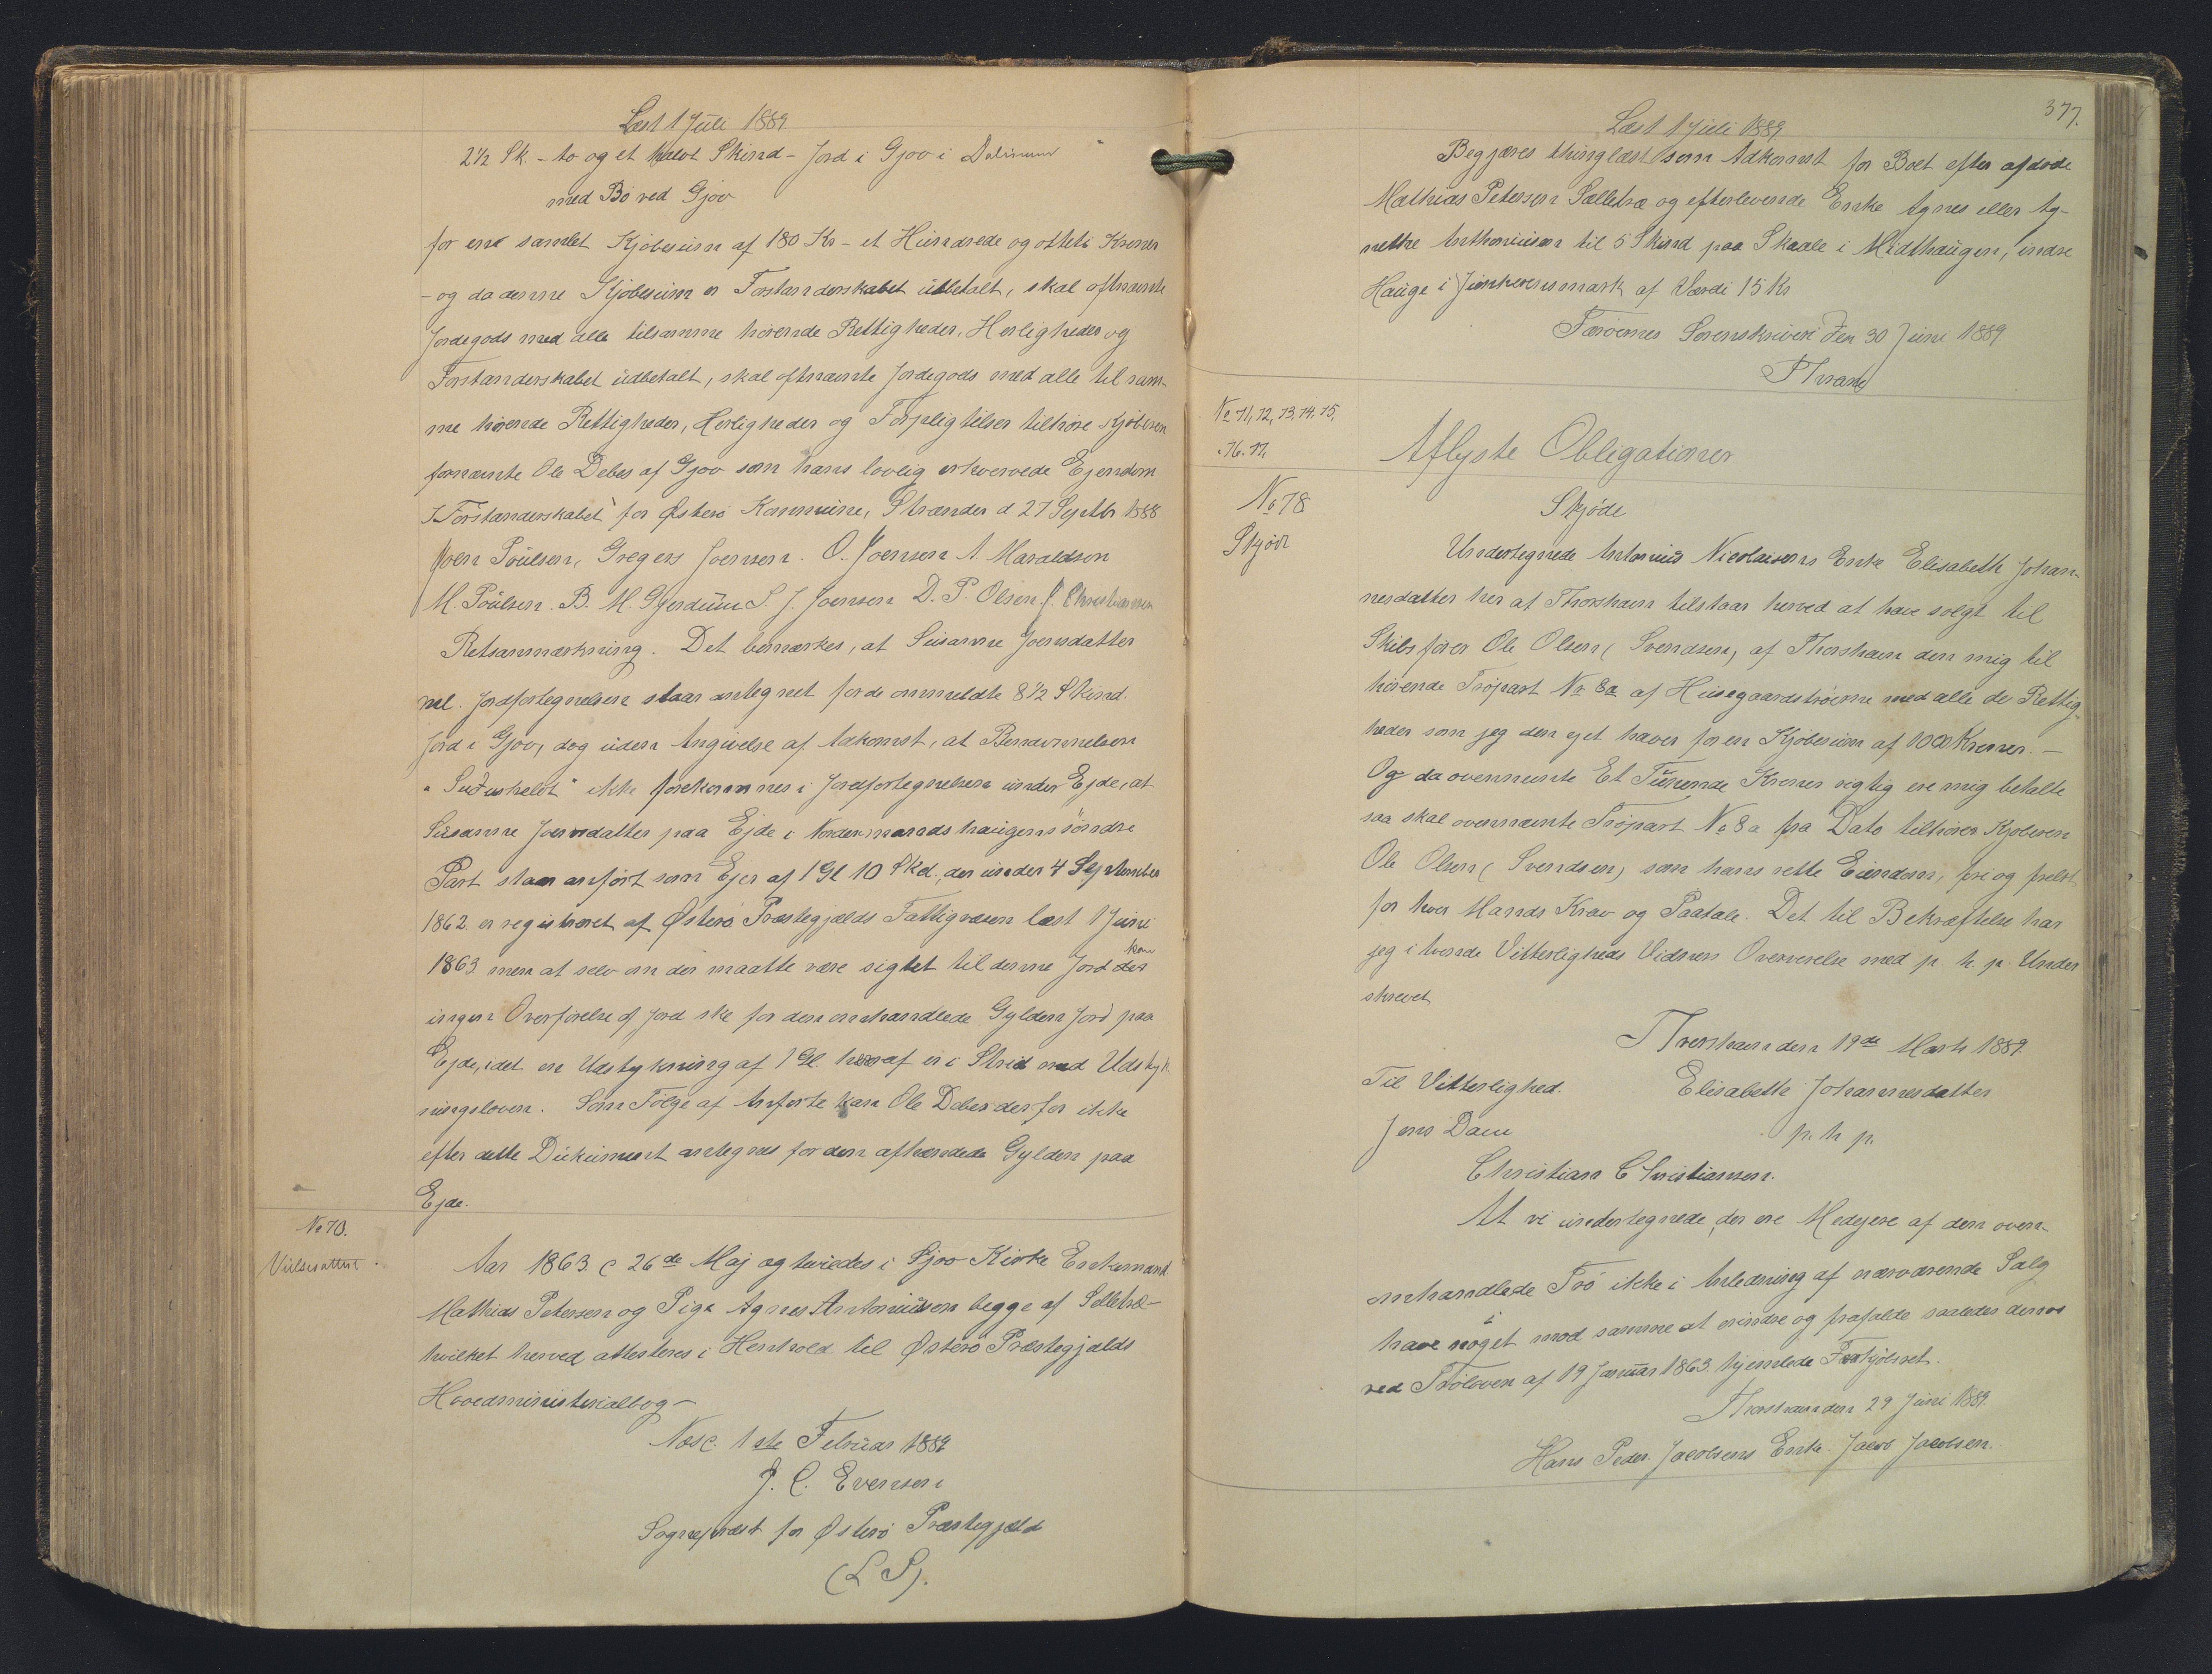 Læst 1 Juli 1889.
2½ Sk. - to og et halvt Skind - Jord i Gjov i Dalinum "
med Bø ved Gjov
for en samlet Kjøbesum af 180 Kr - et Hundrede og otteti Kroner
- og da denne Kjøbesum er Forstanderskabet udbetalt, skal oftnævnte
Jordegods med alle tilsamme hørende Rettigheder, Herligheder og
Forstanderskabet udbetalt, skal oftnævnte Jordegods med alle til sam-
me hørende Rettigheder, Herligheder og Forpligtelser tilhøre Kjøberen
fornævnte Ole Debes af Gjov som hans lovlig erhvervede Ejendom
I Forstanderskabet for Østerø Kommune, Strænder d 27 Septbr 1888
Joen Poulsen, Gregers Joensen. O. Joensen A. Haraldson
M. Poulsen. B. M. Gjerdum S. J. Joensen D. P. Olsen J. Christiansen
Retsanmærkning. Det bemærkes, at Susanne Joensdatter
vel. Jordfortegnelsen staar antegnet for de ommeldte 8½ Skind
Jord i Gjov, dog uden Angivelse af Adkomst, at Benævnnelsen
" Suðurheldt" ikke forekommer i Jordfortegnelsen under Ejde, at
Susanne Joensdatter paa Ejde i Nordermands haugens søndre
Part staar anført som Ejer af 1 Gl 10 Skd., der under 4 September
1862 er registreret af Østerø Præstegjælds Fattigvæsen læst 1 Juni
1863 men at selv om der maatte være sigtet til denne Jord der kan
ingen Overførelse af Jord ske for den omhandlede Gylden Jord paa
Ejde, idet en Udstykning af 1 Gl. heraf er i Strid med Udstyk
ningsloven. Som Følge af Anførte kan Ole Debes derfor ikke
efter dette Dokument antegnes for den afhændede Gylden paa
Ejde.
No 70.
Vielsesattest.
Aar 1863 d 26de Maj ægteviedes i Gjov Kirke Enkemand
Mathias Petersen og Pige Agnes Antoniusen begge af Selletræ-
hvilket herved attesteres i Henhold til Østerø Præstegjælds
Hovedministerialbog-
Næs d. 1ste Februar 1889
J. C. Evensen
Sognepræst for Østerø Præstegjæld
(L S).
377.
Læst 1 Juli 1889
Begjæres thinglæst som Adkomst for Boet efter afdøde
Mathias Petersen Sælletræ og efterlevende Enke Agnes eller Ag-
nethe Anthoniusen til 5 Skind paa Skaale i Midthaugen, indre
Hauge i Junkerensmark af Værdi 15 Kr
Færøernes Sorenskriveri den 30 Juni 1889
PThrane
No 71, 72, 73, 74, 75,
76. 77,
Aflyste Obligationer
No 78
Skjøde
Skjøde
Undertegnede Antonius Nicolaisens Enke Elisabeth Johan-
nesdatter her af Thorshavn tilstaar herved at have solgt til
Skibsfører Ole Olsen (Svendsen) af Thorshavn den mig til
hørende Trøpart No 8a af Husegaardstrøerne med alle de Rettig-
heder som jeg den ejet haver for en Kjøbesum af 1000 Kroner. -
Og da ovennævnte Et Tusende Kroner rigtig ere mig betalte
saa skal ovennævnte Trøpart No 8a fra Dato tilhøre Kjøberen
Ole Olsen (Svendsen) som hans rette Eiendom, fri og frelst
for hver Mands Krav og Paatale. Det til Bekræftelse har
jeg i tvende Vitterligheds Vidners Overværelse med p. h. p. Under
skrevet
Thorshavn den 19de Marts 1889.
Til Vitterlighed. Elisabeth Johannesdatter
Jens Dam p. h p.
Christian Christiansen.
At vi undertegnede, der ere Medejere af den oven-
omhandlede Trø ikke i Anledning af nærværende Salg
have noget mod samme at erindre og frafalde saaledes den os
ved Trøloven af 19 Januar 1863 hjemlede Forkjøbsret.
Thorshavn den 29 Juni 1889.
Hans Peder Jacobsens Enke. Jacob Jacobsen.